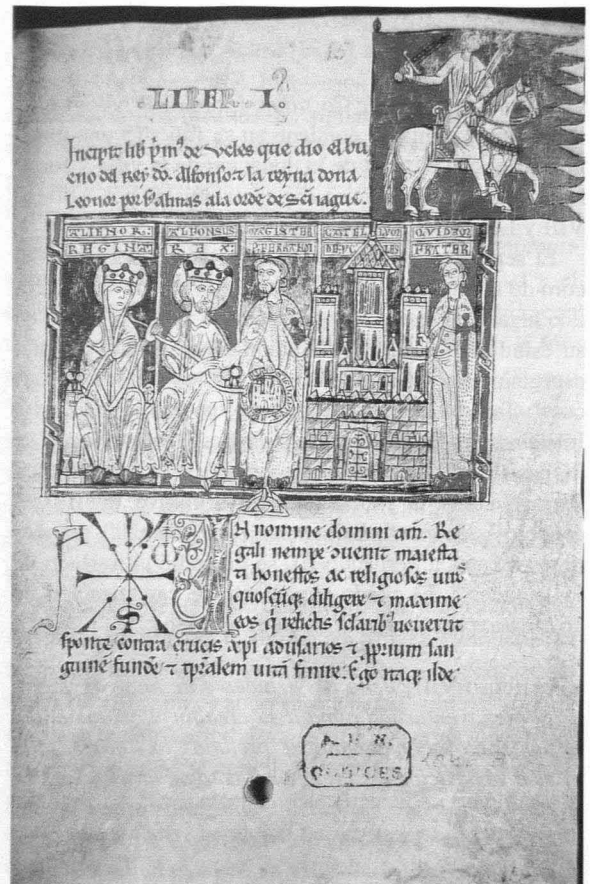 LIBER I
Incipit lib p̃m⁹ de Veles que dio el bu
eno del Rey dõ. Alfonso ⁊ la reyna dona
Leonor por sꝰ almas ala ordẽ de Sc̃i iague.
ALIENOR: ALFONSUS MAGISTER CASTELLVM QVIDAM
REGINA: REX: P. FERRANDI DE VCLES FRATER
IN nomine domini am̃. Re
gali nempe ꝯuenit maiesta
ti honestos ac religiosos uiros
quoscũq; diligere ⁊ maxime
eos q̃ relictis sclãrib⁹ uouerũt
sponte contra crucis xp̃i adũsarios ⁊ ꝓprium san
guinẽ fundẽ ⁊ tp̃ralem uitã finire. Ego itaq; ilde
A. H. N.
CODICES